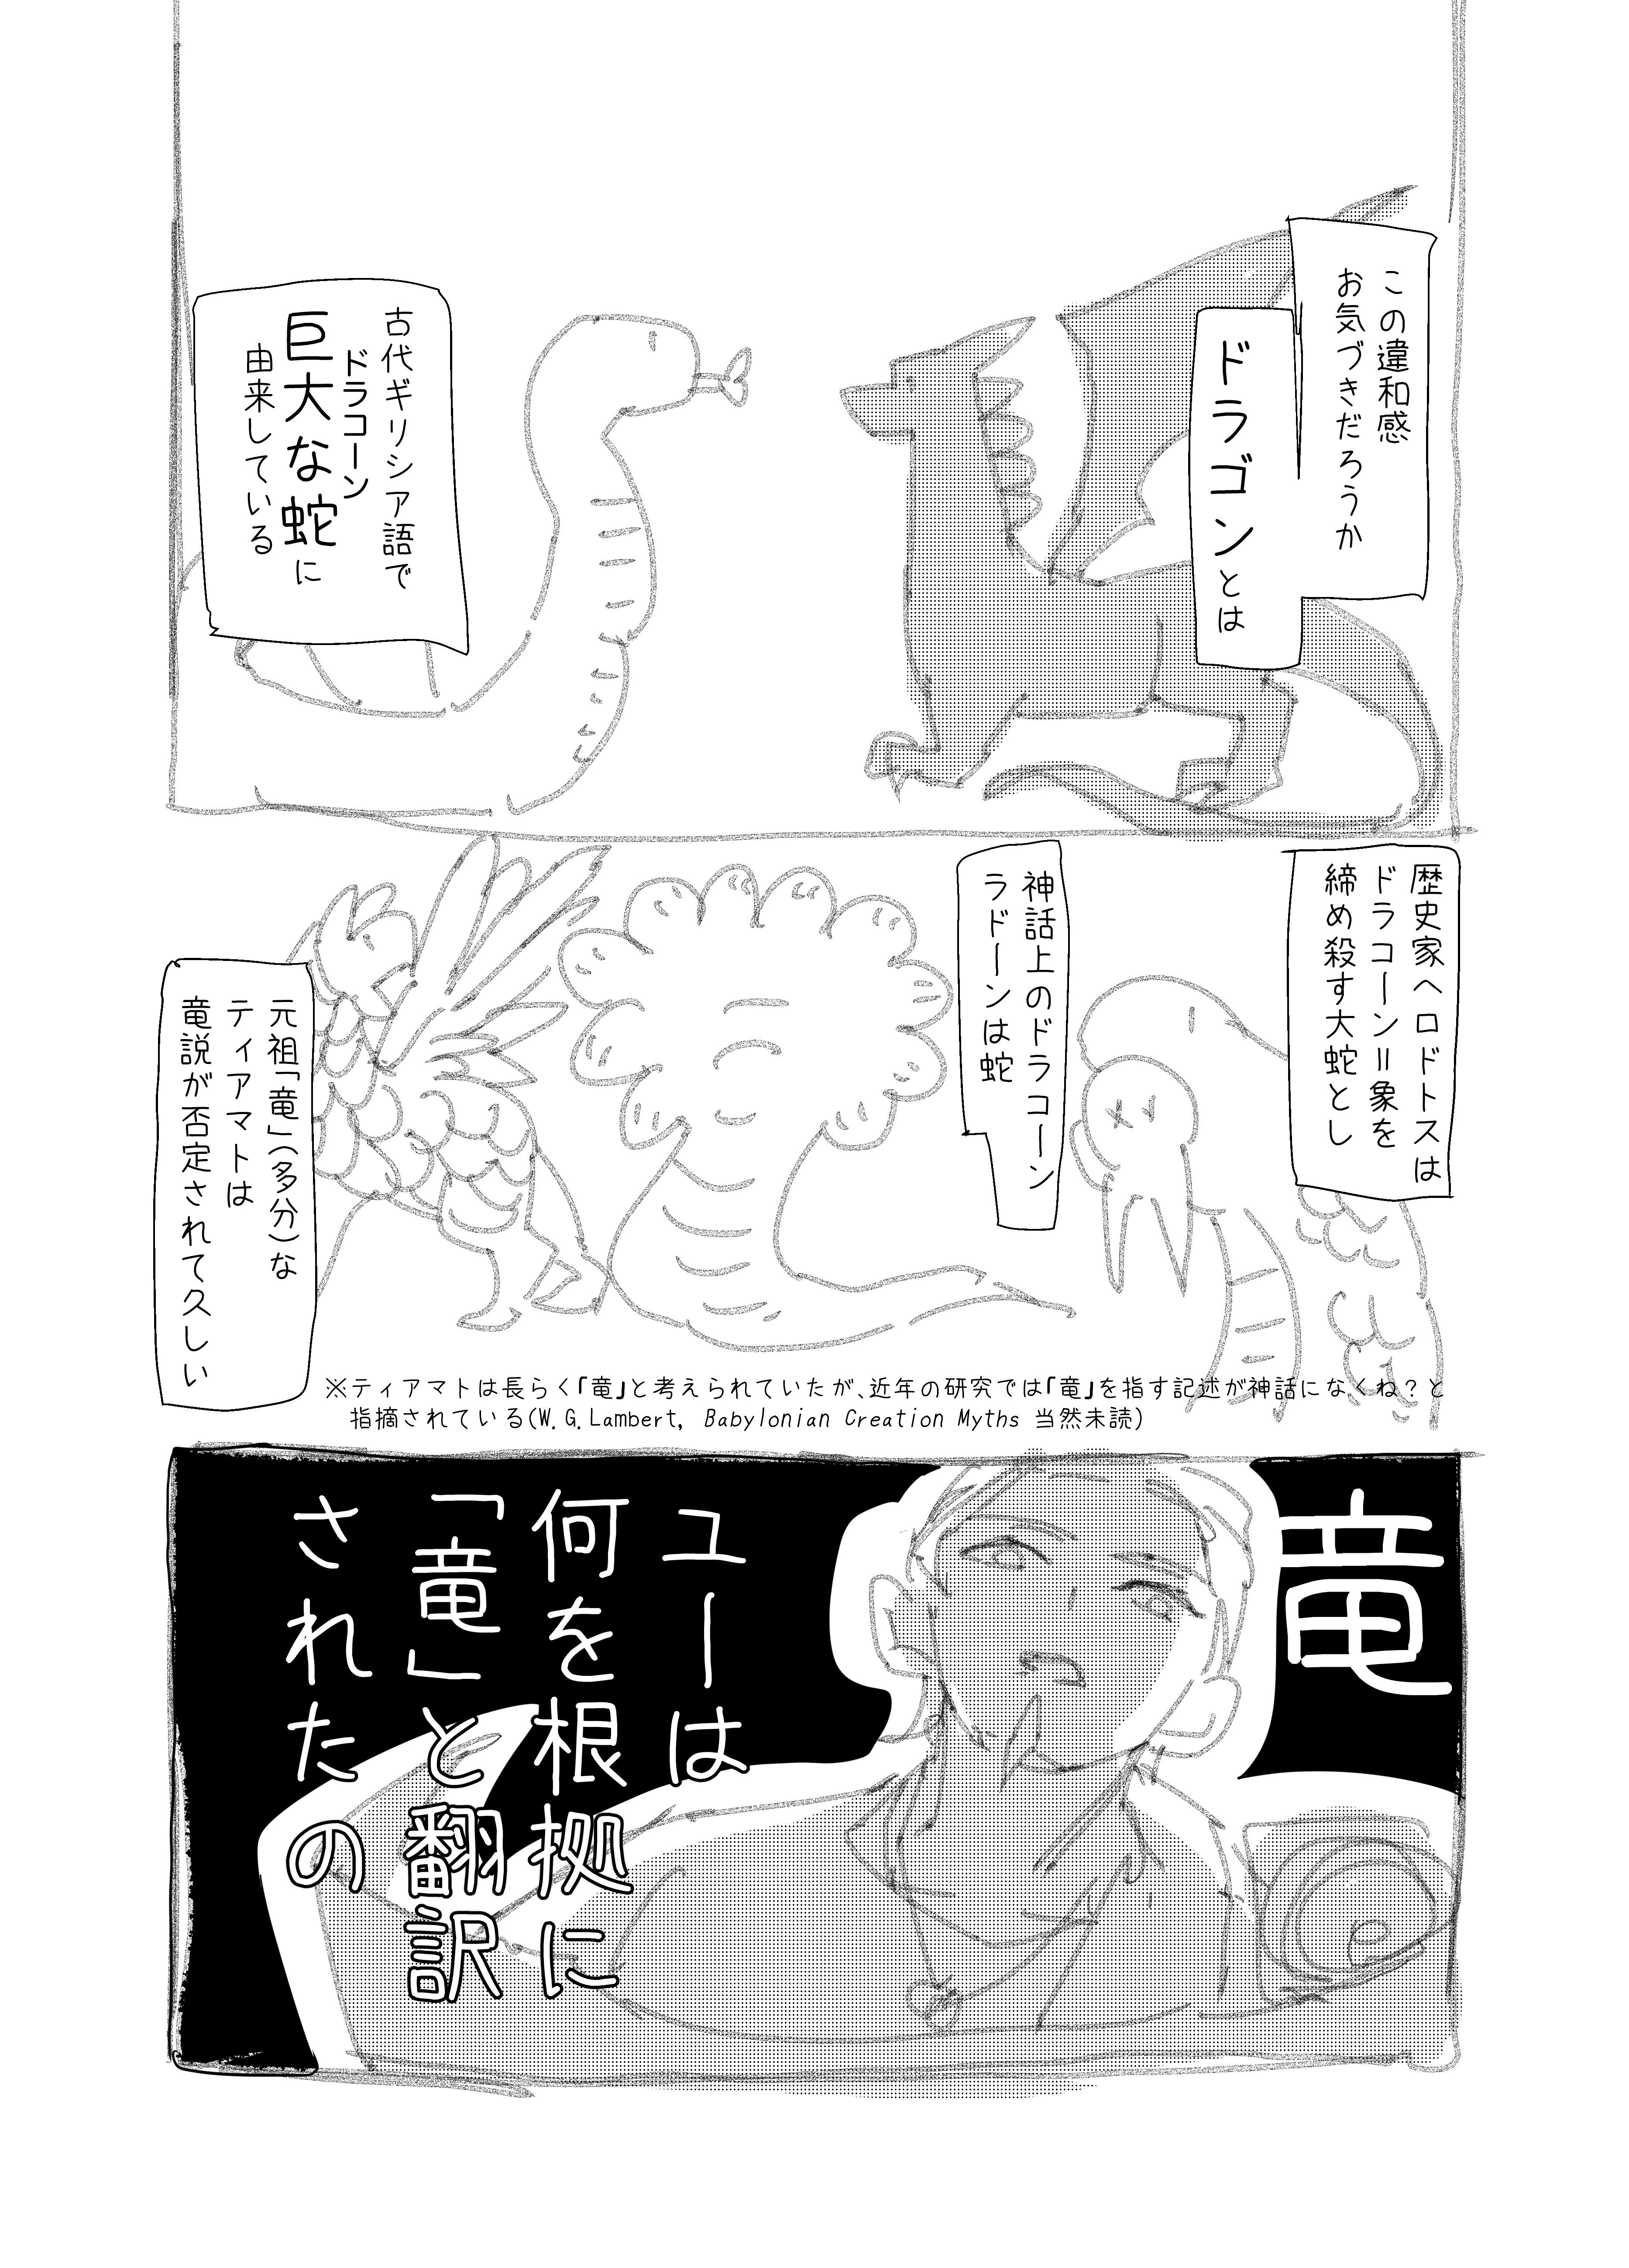 この違和感
お気づきだろうか
ドラゴンとは
古代ギリシア語で
ドラコーン
巨大な蛇に
由来している
歴史家ヘロドトスは
ドラコーン=象を
締め殺す大蛇とし
神話上のドラコーン
ラドーンは蛇
元祖「竜」(多分)な
ティアマトは
竜説が否定されて久しい
※ティアマトは長らく「竜」と考えられていたが、近年の研究では「竜」を指す記述が神話になくね?と
指摘されている(W.G.Lambert, Babylonian Creation Myths 当然未読)
竜
ユーは
何を根拠に
「竜」と翻訳
されたの